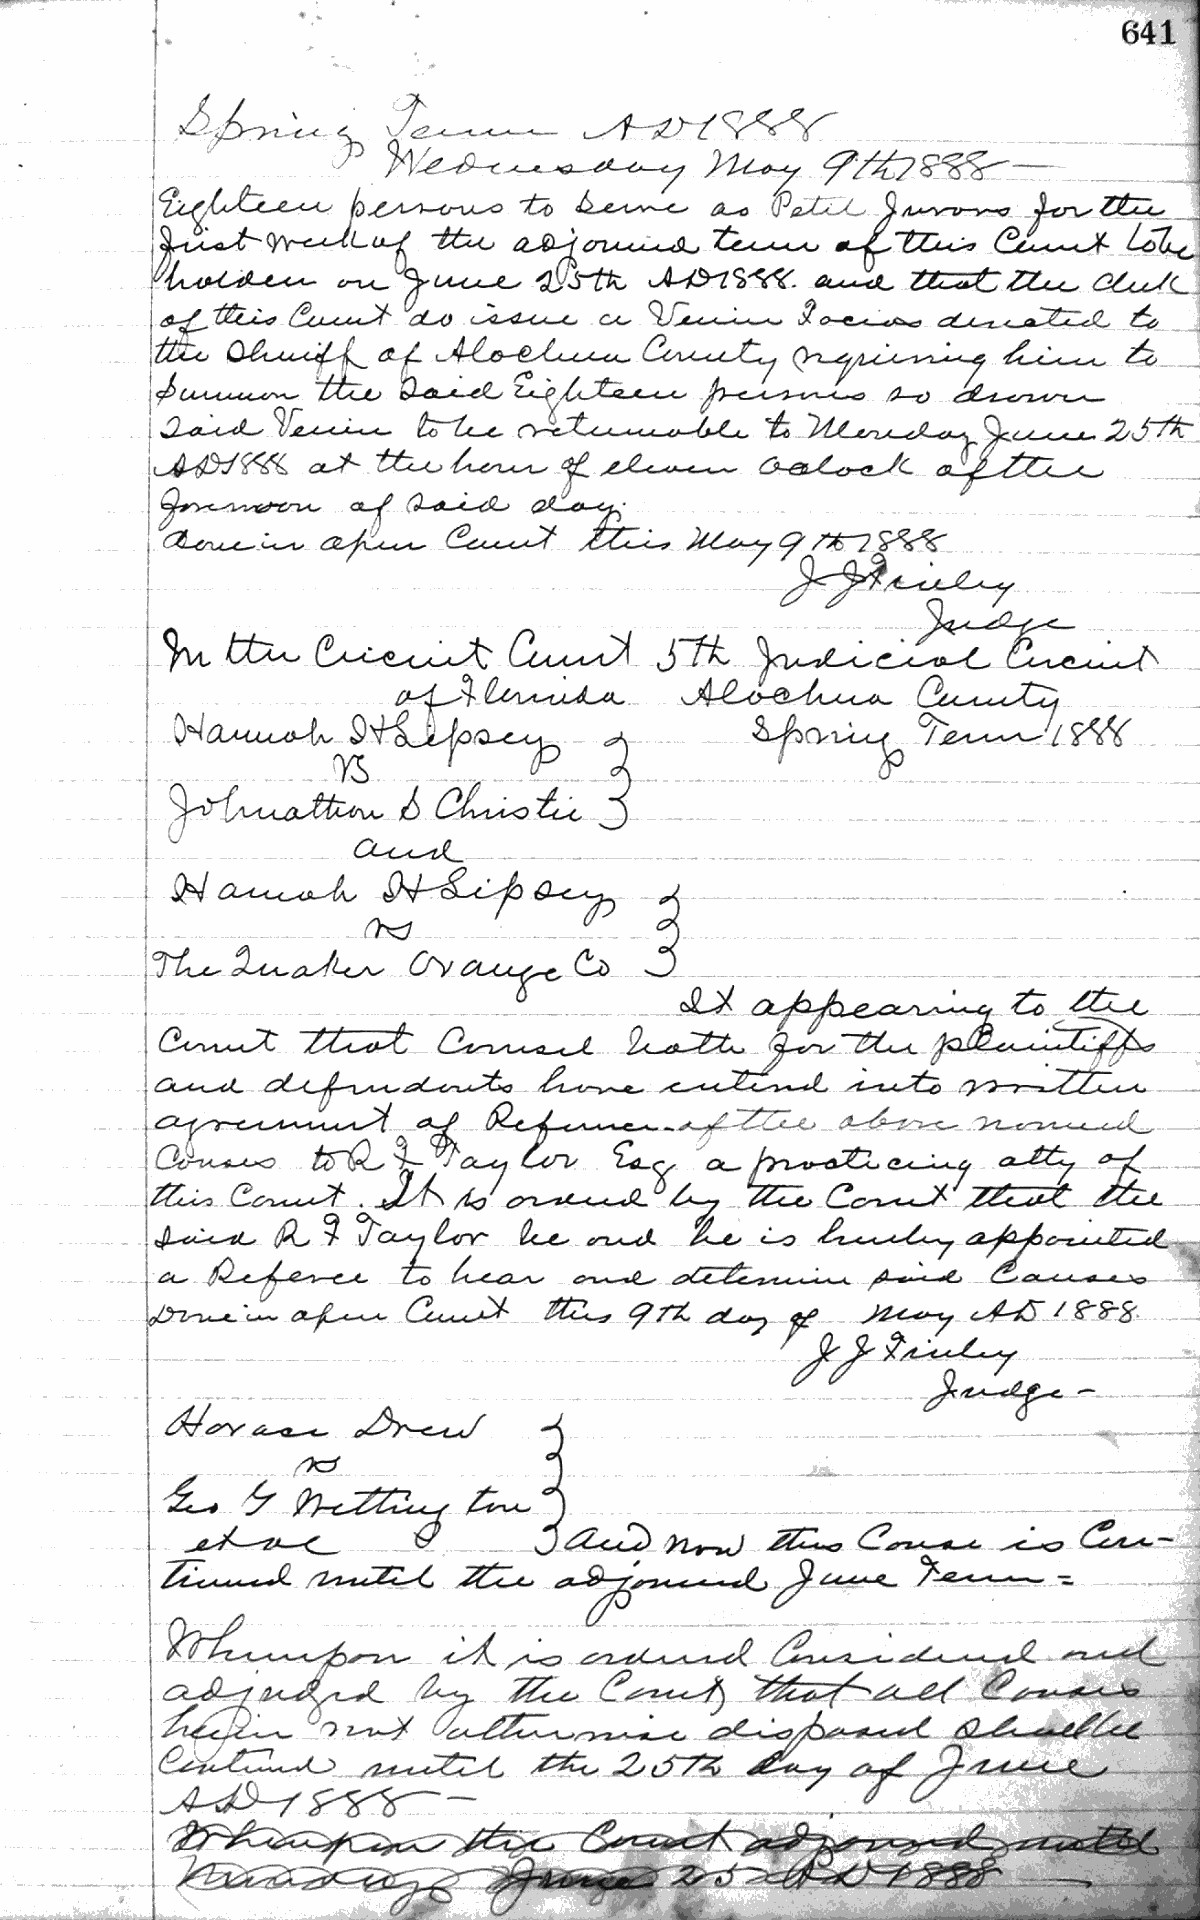 641
Spring Term AD 1888
Wednesday May 9th 1888 —
Eighteen persons to serve as Petit Jurors for the
first week of the adjourned term of this Court to be
holden on June 25th AD 1888. and that the clerk
of this Court do issue a Venire Facias directed to
the Sheriff of Alachua County requiring him to
summon the said Eighteen persons so drawn
said Venire to be returnable to Monday June 25th
AD 1888 at the hour of eleven oclock of the
forenoon of said day.
Done in open Court this May 9th 1888
J J Finley
Judge
In the Circuit Court 5th Judicial Circuit
of Florida Alachua County
Hannah H Lipsey } Spring Term 1888
vs
Johnathon S Christie
and
Hannah H Lipsey }
vs
The Quaker Orange Co
It appearing to the
Court that Counsel both for the plaintiffs
and defendants have entered into written
agreement of Reference of the above named
Causes to R F Taylor Esq a practicing atty of
this Court. It is ordered by the Court that the
said R F Taylor be and he is hereby appointed
a Referee to hear and determine said Causes
Done in open Court this 9th day of May AD 1888.
J J Finley
Judge -
Horace Drew }
vs
Geo G Whittington
et al } And now this Cause is Con-
tinued until the adjourned June Term =
Whereupon it is ordered Considered and
adjudged by the Court, that all Causes
herein not otherwise disposed shall be
Continued until the 25th day of June
AD 1888 —
Whereupon the Court adjourned until
Monday June 25 AD 1888 —